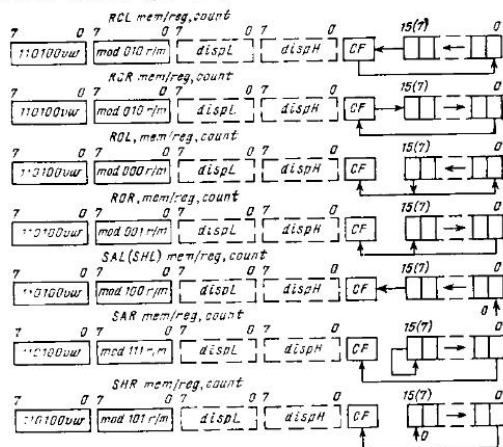 RCL mem/reg,count
7 0 7 0 7 0 7 0 15(7) 0
110100vw mod 010 r/m dispL dispH CF
RCR mem/reg,count
7 0 7 0 7 0 7 0 15(7) 0
110100vw mod 010 r/m dispL dispH CF
ROL, mem/reg,count
7 0 7 0 7 0 7 0 15(7) 0
110100vw mod 000 r/m dispL dispH CF
ROR, mem/reg,count
7 0 7 0 7 0 7 0 15(7) 0
110100vw mod 001 r/m dispL dispH CF
SAL(SHL) mem/reg,count
7 0 7 0 7 0 7 0 15(7) 0
110100vw mod 100 r/m dispL dispH CF
0
SAR mem/reg,count
7 0 7 0 7 0 7 0 15(7) 0
110100vw mod 111 r/m dispL dispH CF
SHR mem/reg,count
7 0 7 0 7 0 7 0 15(7) 0
110100vw mod 101 r/m dispL dispH CF
0